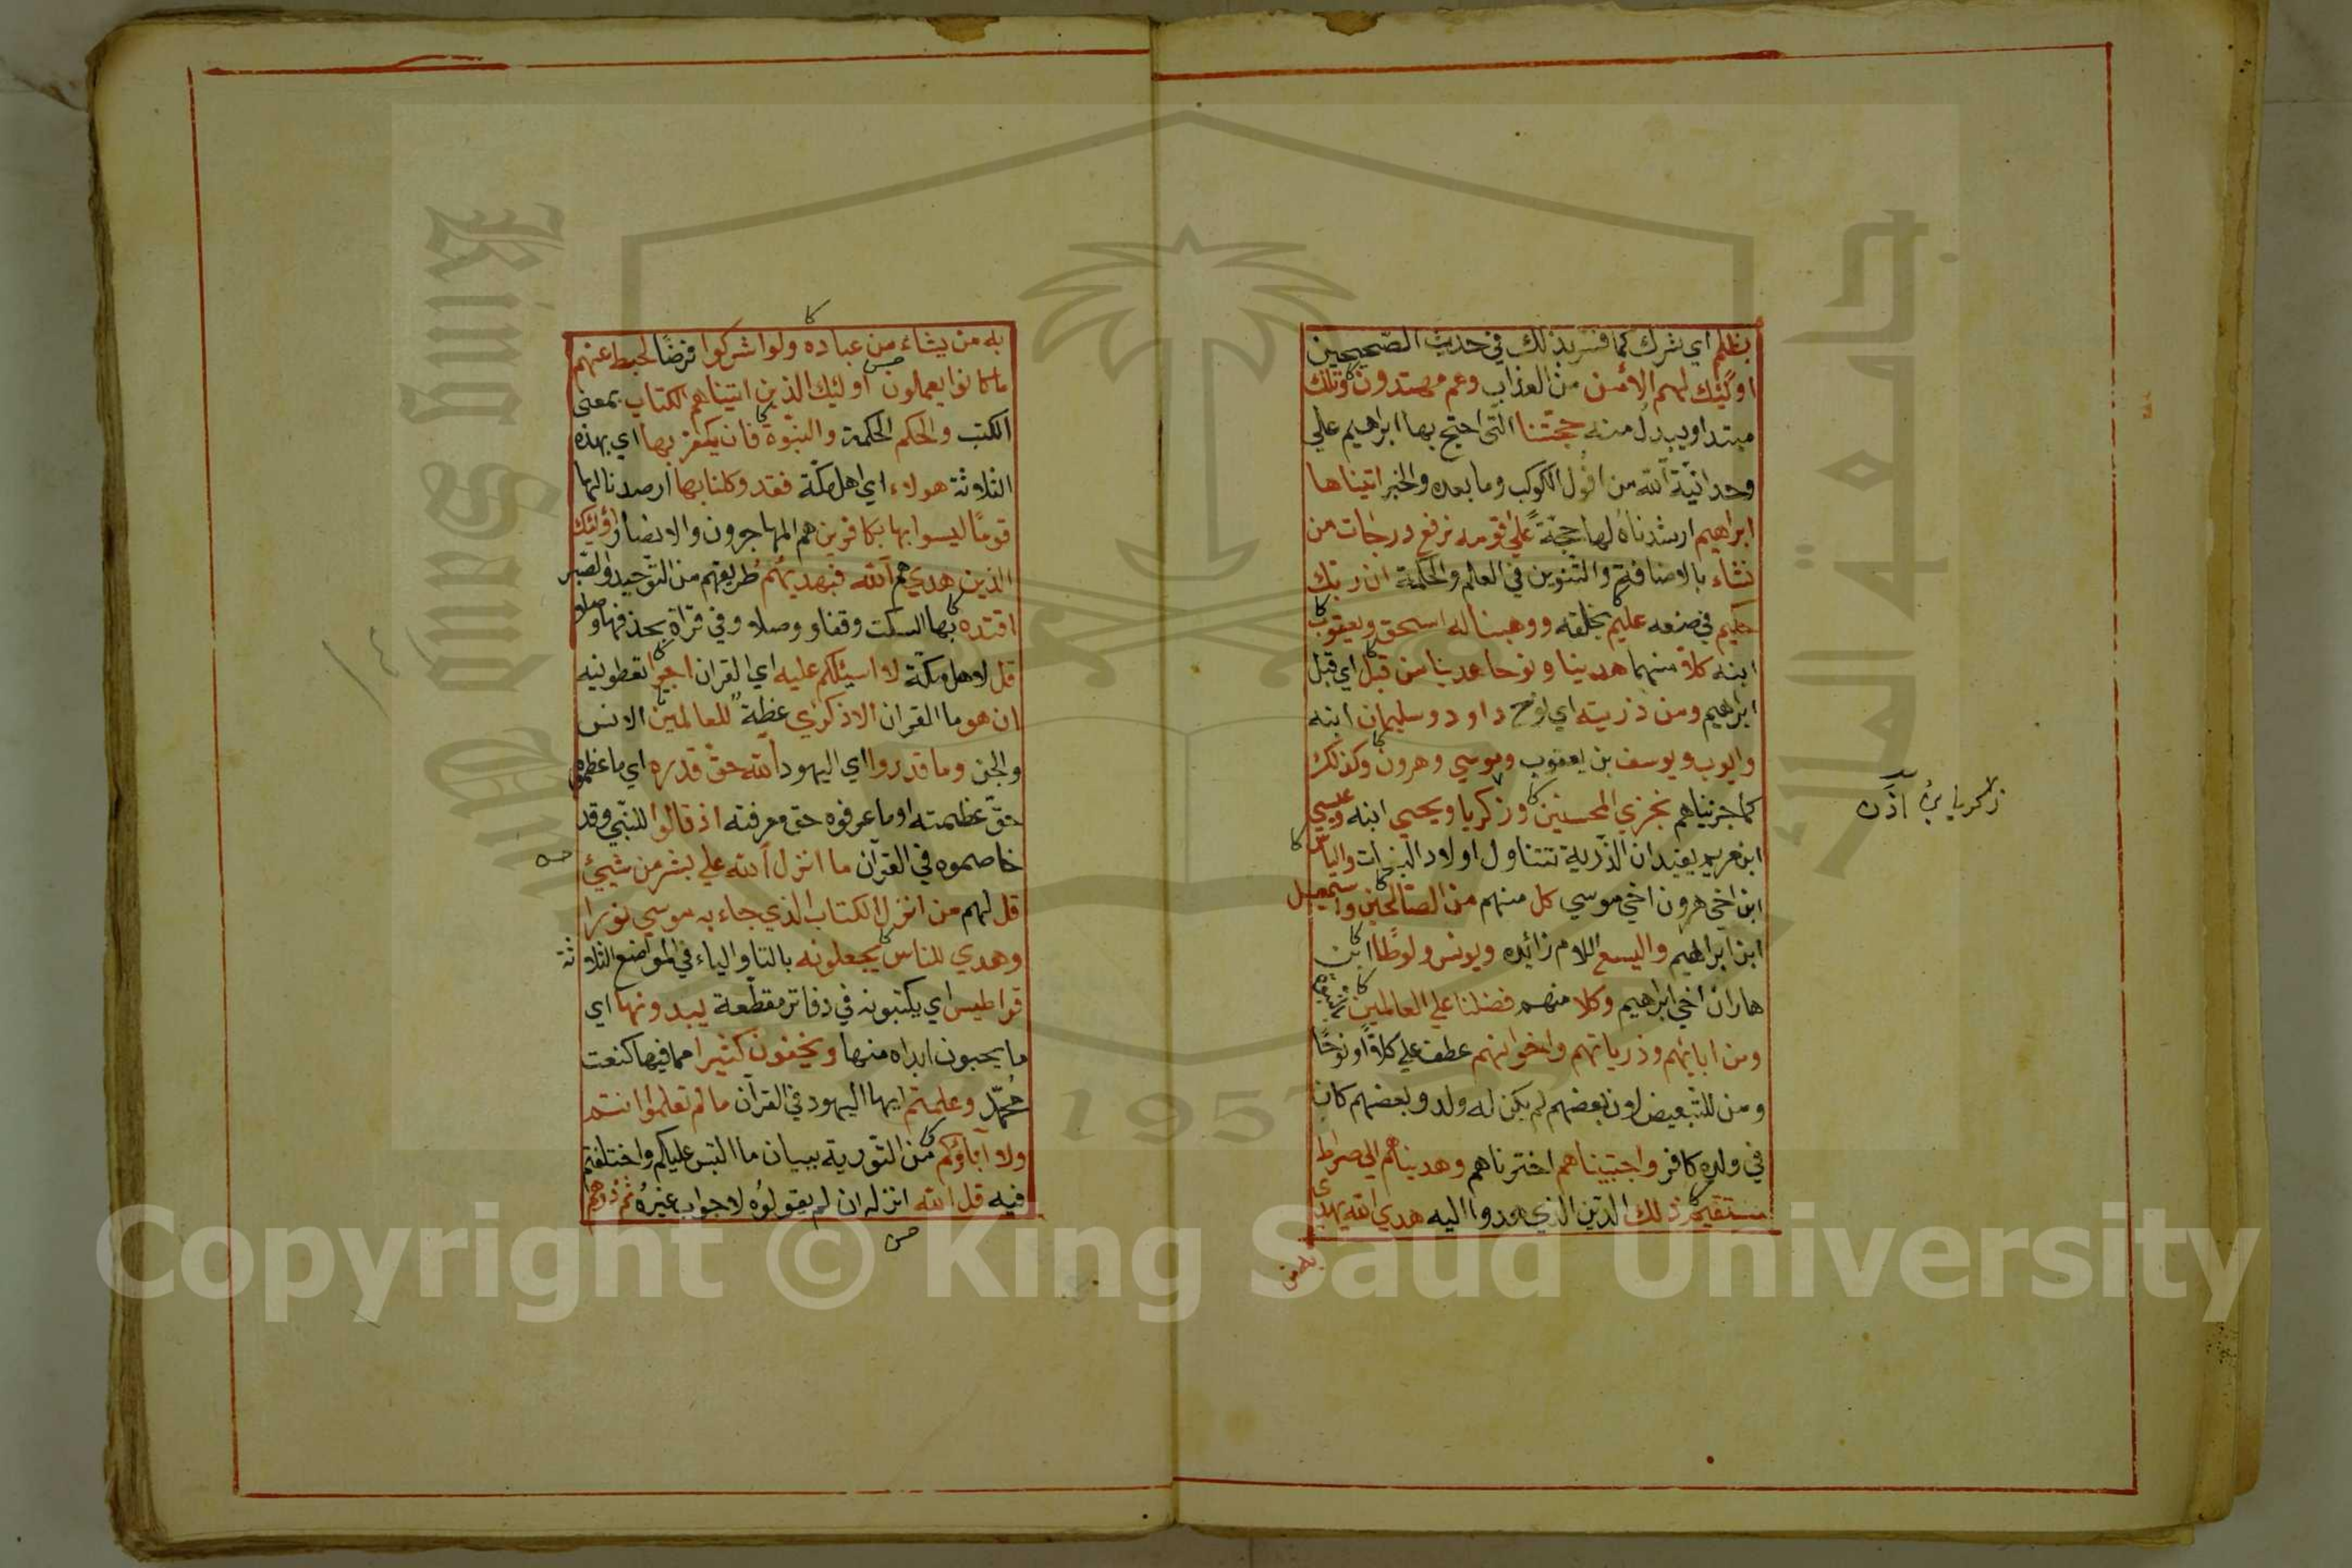 بظلم اي شرك كما فسر بذلك في حديث الصحيحين
اولئك لهم الامن من العذاب وهم مهتدون وتلك
مبتدا ويبدل منه حجتنا التي احتج بها ابراهيم علي
وحدانية الله من افول الكوكب وما بعده والخبر اتيناها
ابراهيم ارشدناه لها حجة علي قومه نرفع درجات من
نشاء بالاضافة والتنوين في العلم والحكمة ان ربك
حكيم في صنعه عليم بخلقه ووهبنا له اسحق ويعقوب
ابنه كلا منهما هدينا ونوحا هدينا من قبل اي قبل
ابراهيم ومن ذريته اي نوح داود وسليمان ابنه
وايوب ويوسف بن يعقوب وموسي وهرون وكذلك
كما جزيناهم نجزي المحسنين وزكريا ويحيي ابنه وعيسي
ابن مريم يفيد ان الذرية تتناول اولاد البنات والياس
ابن اخي هرون اخي موسي كل منهم من الصالحين واسمعيل
ابن ابراهيم واليسع اللام زائده ويونس ولوطا ابن
هاران اخي ابراهيم وكلا منهم فضلنا علي العالمين بالنبوة
ومن ابائهم وذرياتهم واخوانهم عطف علي كلا او نوحا
ومن للتبعيض لان بعضهم لم يكن له ولد وبعضهم كان
في ولده كافر واجتبيناهم اخترناهم وهديناهم الي صراط
مستقيم ذلك الدين الذي هدوا اليه هدي الله يهدي
به من
زكريا بن اذن
به من يشاء من عباده ولو اشركوا فرضا لحبط عنهم
ما كانوا يعملون اولئك الذين اتيناهم الكتاب بمعني
الكتب والحكم الحكمة والنبوة فان يكفر بها اي بهذه
الثلاثة هولاء اي اهل مكة فقد وكلنا بها ارصدنا لها
قوما ليسوا بها بكافرين هم المهاجرون والانصار اولئك
الذين هدي هم الله فبهديهم طريقهم من التوحيد والصبر
اقتده بهاء السكت وقفا ووصلا وفي قراة بحذفها وصلا
قل لاهل مكة لا اسئلكم عليه اي القران اجرا تعطونيه
ان هو ما القران الا ذكري عظة للعالمين الانس
والجن وما قدروا اي اليهود الله حق قدره اي ما عظموه
حق عظمته او ما عرفوه حق معرفته اذ قالوا للنبي وقد
خاصموه في القرآن ما انزل الله علي بشر من شيئ
قل لهم من انزل الكتاب الذي جاء به موسي نورا
وهدي للناس يجعلونه بالتا والياء في المواضع الثلاثة
قراطيس اي يكتبونه في دفاتر مقطعة يبدونها اي
ما يحبون ابداه منها ويخفون كثيرا مما فيها كنعت
محمد وعلمتم ايها اليهود في القرآن ما لم تعلموا انتم
ولا آباؤكم من التورية ببيان ما التبس عليكم واختلفتم
فيه قل الله انزله ان لم يقولوه لا جواب غيره ثم ذرهم
1957
Copyright © King Saud University
King Saud
جامعة الملك